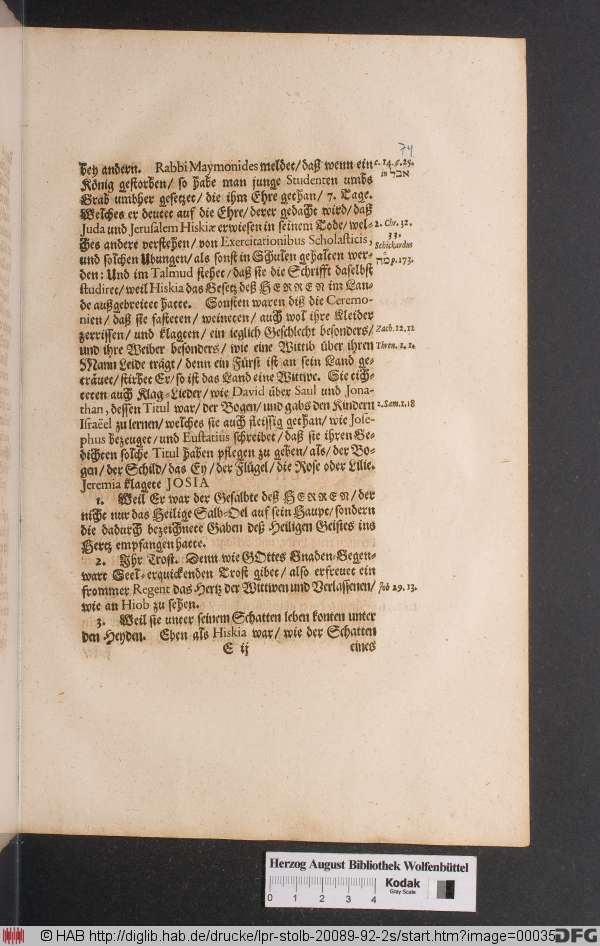 74
bey andern. Rabbi Maymonides meldet/ daß wenn ein
c. 14. §. 25.
König gestorben/ so habe man junge Studenten umbs
in אבל
Grab umbher gesetzet/ die ihm Ehre gethan/ 7. Tage.
Welches er deutet auf die Ehre/ derer gedacht wird/ daß
Juda und Jerusalem Hiskiæ erwiesen in seinem Tode/ wel-
2. Chr. 32.
33.
ches andere verstehen/ von Exercitationibus Scholasticis,
Schickardus
und solchen Ubungen/ als sonst in Schulen gehalten wer-
p. 173.
den: Und im Talmud stehet/ daß sie die Schrifft daselbst
studiret/ weil Hiskia das Gesetz deß HERREN im Lan-
de außgebreitet hatte. Sonsten waren diß die Ceremo-
nien/ daß sie fasteten/ weineten/ auch wol ihre Kleider
zerrissen/ und klagten/ ein ieglich Geschlecht besonders/
Zach. 12. 12
und ihre Weiber besonders/ wie eine Wittib über ihren
Thren. 1. 1.
Mann Leide trägt/ denn ein Fürst ist an sein Land ge-
träuet/ stirbet Er/ so ist das Land eine Wittwe. Sie tich-
teten auch Klag-Lieder/ wie David über Saul und Jona-
than, dessen Titul war/ der Bogen/ und gabs den Kindern
2. Sam. 1. 18
Israëel zu lernen/ welches sie auch fleissig gethan/ wie Jose-
phus bezeuget/ und Eustatius schreibet/ daß sie ihren Ge-
dichten solche Titul haben pflegen zu geben/ als/ der Bo-
gen/ der Schild/ das Ey/ der Flügel/ die Rose oder Lilie.
Jeremia klagete JOSIA
1. Weil Er war der Gesalbte deß HERREN/ der
nicht nur das Heilige Salb-Oel auf sein Haupt/ sondern
die dadurch bezeichnete Gaben deß Heiligen Geistes ins
Hertz empfangen hatte.
2. Ihr Trost. Denn wie GOttes Gnaden-Gegen-
wart Seel-erquickenden Trost gibet/ also erfreuet ein
frommer Regent das Hertz der Wittwen und Verlassenen/
Job 29. 13.
wie an Hiob zu sehen.
3. Weil sie unter seinem Schatten leben konten unter
den Heyden. Eben als Hiskia war/ wie der Schatten
E ij
eines
Herzog August Bibliothek Wolfenbüttel
0 1 2 3 4
Kodak
Gray Scale
© HAB http://diglib.hab.de/drucke/lpr-stolb-20089-92-2s/start.htm?image=00035
DFG